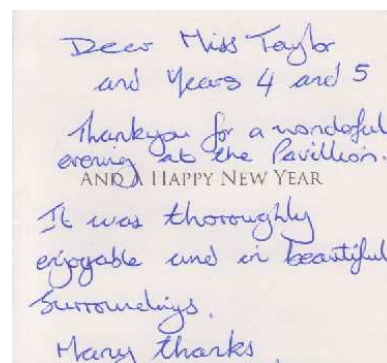 Dear Miss Taylor
and Years 4 and 5
Thankyou for a wondeful
evening at the Pavillion.
AND A HAPPY NEW YEAR
It was thoroughly
enjoyable and in beautiful
surroundings.
Many thanks